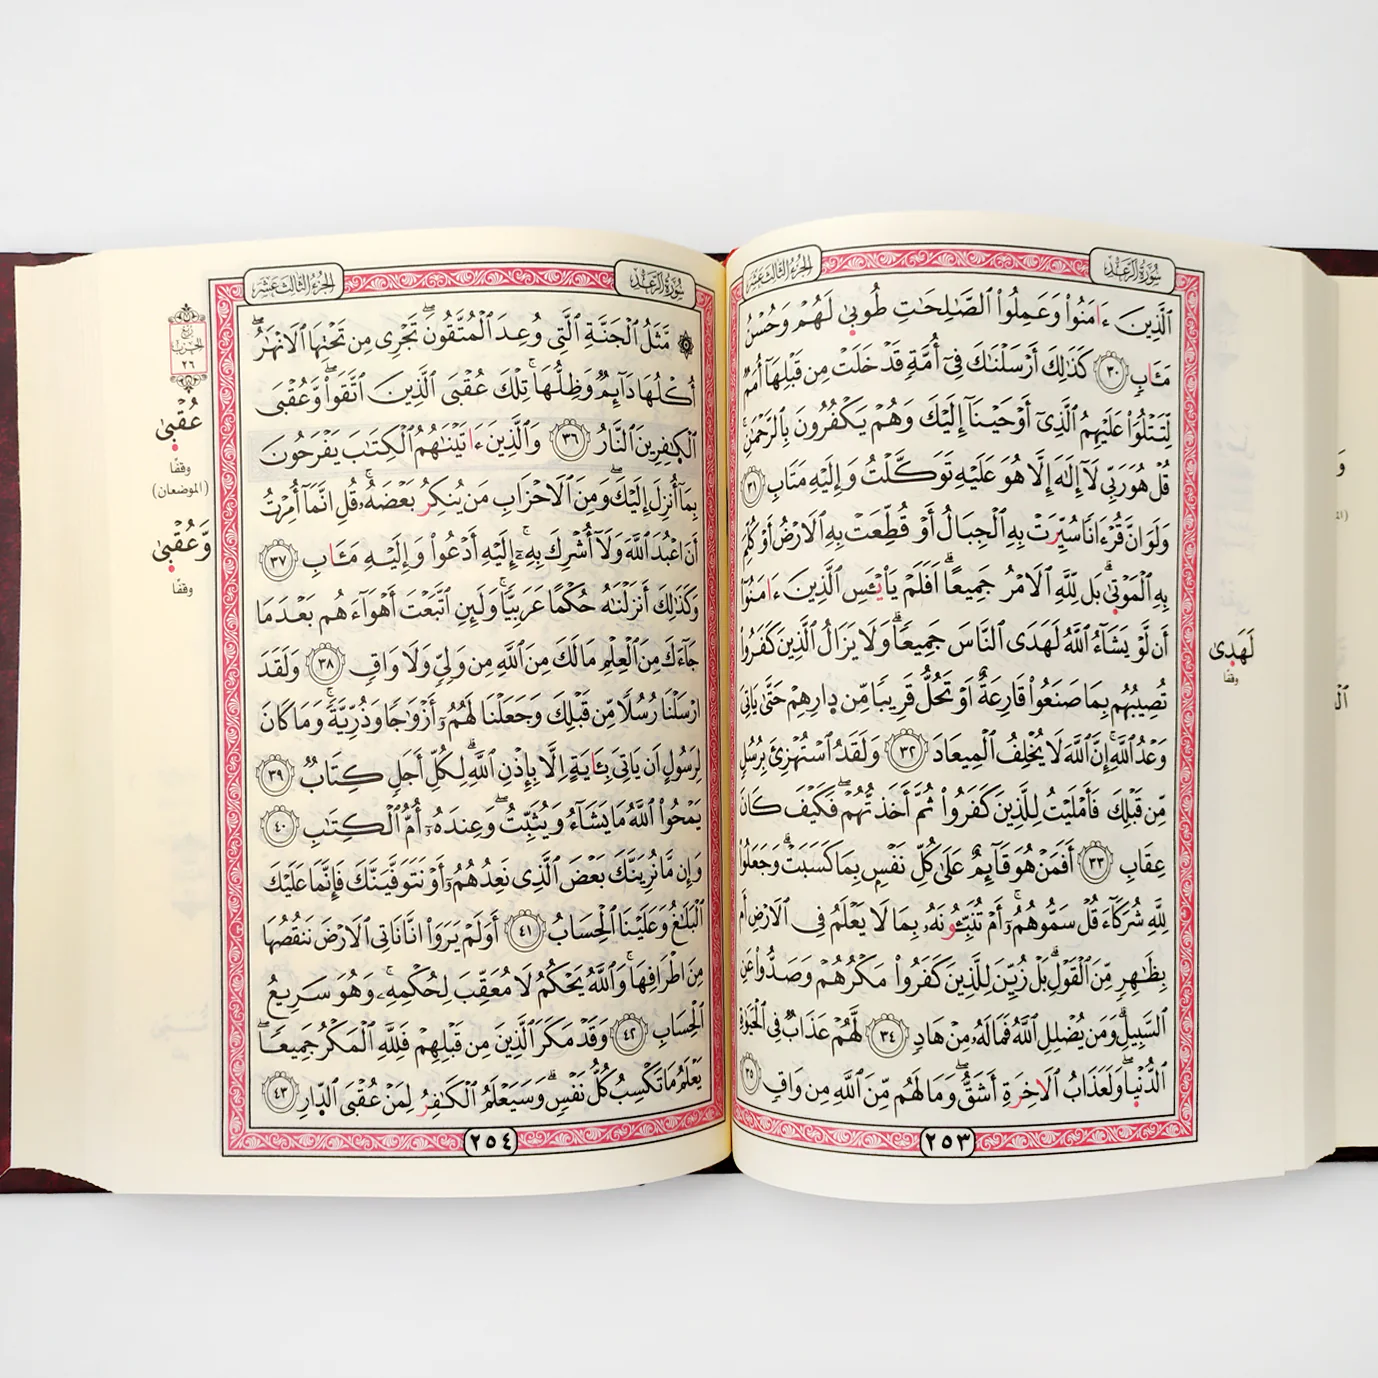 سُورَةُ الرَّعْدِ
الجُزْءُ الثَّالِثَ عَشَرَ
الَّذِينَ ءَامَنُوا۟ وَعَمِلُوا۟ الصَّٰلِحَٰتِ طُوبىٰ لَهُمْ وَحُسْنُ
مَـَٔابٍ ٣٠ كَذَٰلِكَ أَرْسَلْنَٰكَ فِىٓ أُمَّةٍ قَدْ خَلَتْ مِن قَبْلِهَآ أُمَمٌ
لِّتَتْلُوَا۟ عَلَيْهِمُ الَّذِىٓ أَوْحَيْنَآ إِلَيْكَ وَهُمْ يَكْفُرُونَ بِالرَّحْمَٰنِ
قُلْ هُوَ رَبِّى لَآ إِلَٰهَ إِلَّا هُوَ عَلَيْهِ تَوَكَّلْتُ وَإِلَيْهِ مَتَابِ ٣١
وَلَوَ انَّ قُرْءَانًا سُيِّرَتْ بِهِ الْجِبَالُ أَوْ قُطِّعَتْ بِهِ الَارْضُ أَوْ كُلِّمَ
بِهِ الْمَوْتىٰ بَل لِّلَّهِ الَامْرُ جَمِيعًا اَفَلَمْ يَاْيْـَٔسِ الَّذِينَ ءَامَنُوٓا۟
أَن لَّوْ يَشَآءُ اللَّهُ لَهَدَى النَّاسَ جَمِيعًا وَلَا يَزَالُ الَّذِينَ كَفَرُوا۟
تُصِيبُهُم بِمَا صَنَعُوا۟ قَارِعَةٌ اَوْ تَحُلُّ قَرِيبًا مِّن دِارِهِمْ حَتَّىٰ يَاتِىَ
وَعْدُ اللَّهِ إِنَّ اللَّهَ لَا يُخْلِفُ الْمِيعَادَ ٣٢ وَلَقَدُ اسْتُهْزِئَ بِرُسُلٍ
مِّن قَبْلِكَ فَأَمْلَيْتُ لِلَّذِينَ كَفَرُوا۟ ثُمَّ أَخَذتُّهُمْ فَكَيْفَ كَانَ
عِقَابِ ٣٣ أَفَمَنْ هُوَ قَآئِمٌ عَلَىٰ كُلِّ نَفْسٍ بِمَا كَسَبَتْ وَجَعَلُوا۟
لِلَّهِ شُرَكَآءَ قُلْ سَمُّوهُمُۥٓ أَمْ تُنَبِّـُٔونَهُۥ بِمَا لَا يَعْلَمُ فِى الَارْضِ أَم
بِظَٰهِرٍ مِّنَ الْقَوْلِ بَلْ زُيِّنَ لِلَّذِينَ كَفَرُوا۟ مَكْرُهُمْ وَصَدُّوا۟ عَنِ
السَّبِيلِ وَمَن يُضْلِلِ اللَّهُ فَمَا لَهُۥ مِنْ هَادٍ ٣٤ لَّهُمْ عَذَابٌ فِى الْحَيَوٰةِ
الدُّنْيِا وَلَعَذَابُ الَاخِرَةِ أَشَقُّ وَمَا لَهُم مِّنَ اللَّهِ مِن وَاقٍ ٣٥
٢٥٣
لَهَدِىٰ
وقفًا
سُورَةُ الرَّعْدِ
الجُزْءُ الثَّالِثَ عَشَرَ
۞ مَّثَلُ الْجَنَّةِ الَّتِى وُعِدَ الْمُتَّقُونَ تَجْرِى مِن تَحْتِهَا الَانْهَٰرُ
أُكْلُهَا دَآئِمٌ وَظِلُّهَا تِلْكَ عُقْبَى الَّذِينَ اتَّقَوا۟ وَّعُقْبَى
الْكٰفِرِينَ النَّارُ ٣٦ وَالَّذِينَ ءَاتَيْنَٰهُمُ الْكِتَٰبَ يَفْرَحُونَ
بِمَآ أُنزِلَ إِلَيْكَ وَمِنَ الَاحْزَابِ مَن يُنكِرُ بَعْضَهُۥ قُلِ انَّمَآ أُمِرْتُ
أَنَ اعْبُدَ اللَّهَ وَلَآ أُشْرِكَ بِهِۦٓ إِلَيْهِ أَدْعُوا۟ وَإِلَيْهِ مَـَٔابِ ٣٧
وَكَذَٰلِكَ أَنزَلْنَٰهُ حُكْمًا عَرَبِيًّا وَلَئِنِ اتَّبَعْتَ أَهْوَآءَهُم بَعْدَ مَا
جَآءَكَ مِنَ الْعِلْمِ مَا لَكَ مِنَ اللَّهِ مِن وَلِىٍّ وَلَا وَاقٍ ٣٨ وَلَقَدَ
ارْسَلْنَا رُسُلًا مِّن قَبْلِكَ وَجَعَلْنَا لَهُمُۥٓ أَزْوَٰجًا وَذُرِّيَّةً وَمَا كَانَ
لِرَسُولٍ أَن يَاتِىَ بِـَٔايَةٍ اِلَّا بِإِذْنِ اللَّهِ لِكُلِّ أَجَلٍ كِتَابٌ ٣٩
يَمْحُوا۟ اللَّهُ مَا يَشَآءُ وَيُثَبِّتُ وَعِندَهُۥٓ أُمُّ الْكِتَٰبِ ٤٠
وَإِن مَّا نُرِيَنَّكَ بَعْضَ الَّذِى نَعِدُهُمُۥٓ أَوْ نَتَوَفَّيَنَّكَ فَإِنَّمَا عَلَيْكَ
الْبَلَٰغُ وَعَلَيْنَا الْحِسَابُ ٤١ أَوَلَمْ يَرَوَا۟ انَّا نَاتِى الَارْضَ نَنقُصُهَا
مِنَ اطْرَافِهَا وَاللَّهُ يَحْكُمُ لَا مُعَقِّبَ لِحُكْمِهِۦ وَهُوَ سَرِيعُ
الْحِسَابِ ٤٢ وَقَدْ مَكَرَ الَّذِينَ مِن قَبْلِهِمْ فَلِلَّهِ الْمَكْرُ جَمِيعًا
يَعْلَمُ مَا تَكْسِبُ كُلُّ نَفْسٍ وَسَيَعْلَمُ الْكَٰفِرُ لِمَنْ عُقْبَى الدِّارِ ٤٣
٢٥٤
رُبْعُ
الحِزْبِ
٢٦
عُقْبىٰ
وقفًا
(الموضعان)
وَّعُقْبىٰ
وقفًا